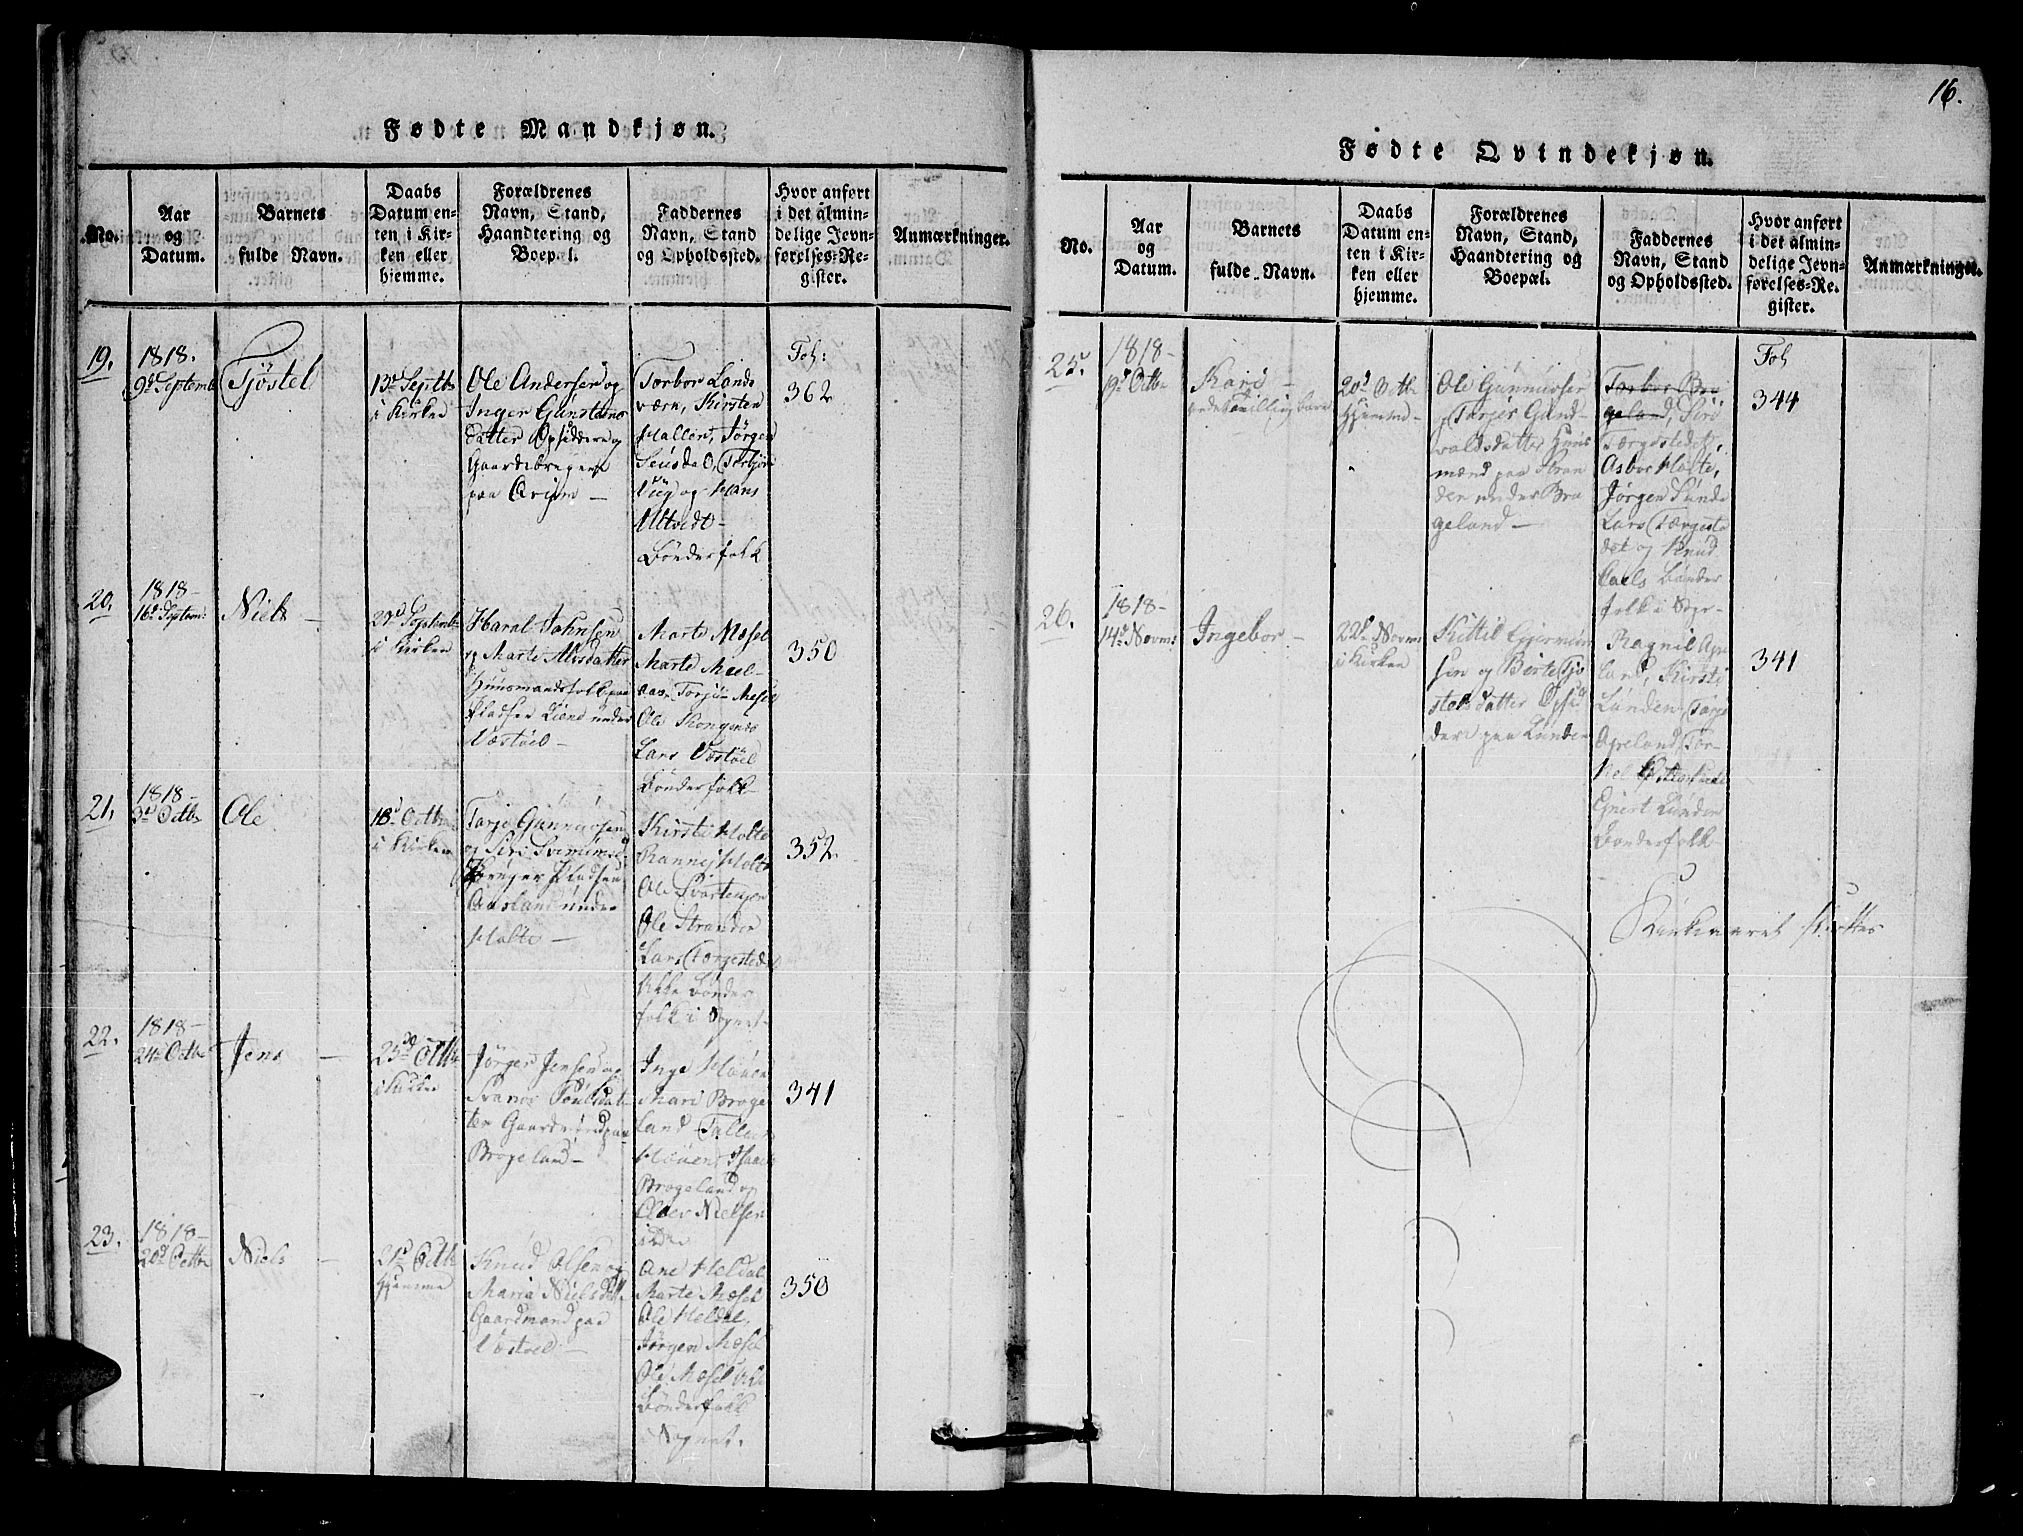 Fødte Mandkjøn.
No.
Aar
og
Datum.
Barnets
fulde Navn.
Daabs
Datum en-
ten i Kir-
ken eller
hjemme.
Forældrenes
Navn, Stand,
Haandtering og
Boepæl.
Faddernes
Navn, Stand
og Opholdssted.
Hvor anført
i det almin-
delige Jevn-
førelses-Re-
gister.
Anmærkninger.
19.
1818.
9d Septemb
Tjöstel
13d Septb
i Kirken
Ole Andersen og
Inger Gunstens
datter Opsiddere og
Gaardebrugere
paa
Torbor Lands
værn, Kirsten
Hallen, Jørgen
og Hans
Ultvedt -
Bønderfolk
Foh:
362
20.
1818-
16d Septem:
Niels -
i Kirken
Haral Jahnsen
og Marte Alvsdatter
Huusmandsfolk paa
Pladsen Liene under
Væstöel -
Marte Mæsel
Marte Meel-
aas Torju Mæsel
Ole Kongsnes
Lars Væstöel
Bønderfolk
350
21.
1818-
3d Octbr
Ole
18d Octbr
i Kirken
Tarje Gunnarsen
og Siri
Pladsen
Aasland under
Holte -
Kirste Holte
Rannej Holte
Ole
Ole Stranden
Lars Torgested
Bønder
folk i Sognet
352
22.
1818-
24d Octbr
Jens -
25d Octbr
i Kirken
Jörgen Jensen og
Poulsdat
ter Gaardmand paa
Brogeland -
Inge Houen
Mari Broge
land Tallev
Houen, Isaac
Brogeland og
Oluv Nielsen
ibid
341
23.
1818-
20d Octbr
Niels -
21d Octb
Hjemme
Knud Olsen og
Maria Nielsd
Gaardmand paa
Væstöel -
Ane Heldal
Marte Mæsel
Ole Heldal,
Jörgen Mæsel
Ole Mæsel
Bönderfolk
Sognet.
350
16.
Fødte Qvindekjøn.
No.
Aar
og
Datum.
Barnets
fulde Navn.
Daabs
Datum en-
ten i Kir-
ken eller
hjemme.
Forældrenes
Navn, Stand,
Haandtering og
Boepæl.
Faddernes
Navn, Stand
og Opholdssted.
Hvor anført
i det almin-
delige Jevn-
førelses-Re-
gister.
Anmærkninger.
25.
1818-
19d Octbr
Kari -
20d Octb
Hjemme -
Ole Gunnarsen
og Tarjer Gund-
valdsdatter Huus
mænd paa Stran
den under Bro
geland -
Torbor Bro
geland, Siri
Torgestedet,
Asbor Holte,
Jørgen Sunde
Lars Torgeste
det og Knud
Bønder
folk i Sogn-
Foh
344
26.
1818-
14d Novm:
Ingebor -
22d Novm
i Kirken
Kittil
sen og Birte Tjö
stelsdatter Opsid
dere paa Lunden
Ragnil Ape
land, Kirsti
Lunden Tarje
Apeland, Tor-
Lunden
Bønderfolk
341
Kirkeaaret sluttes